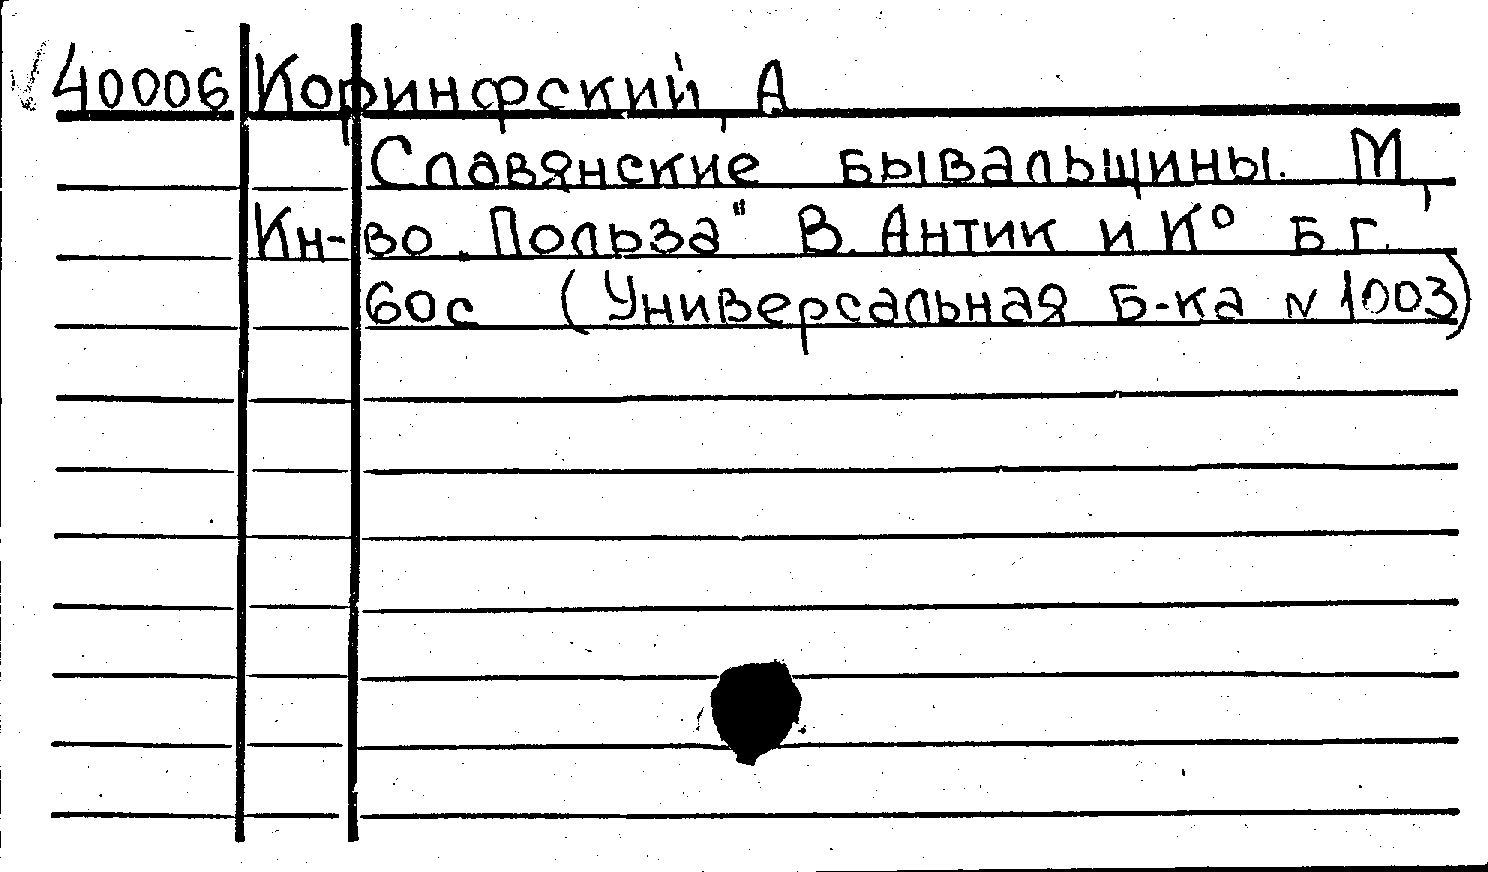 40006 Коринфский, А
Славянские бывальщины. М,
Кн-во „Польза" В. Антик и К° Б.г.
60с (Универсальная Б-ка N 1003)